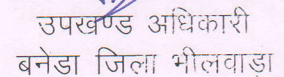 उपखण्ड अधिकारी
बनेडा जिला भीलवाड़ा